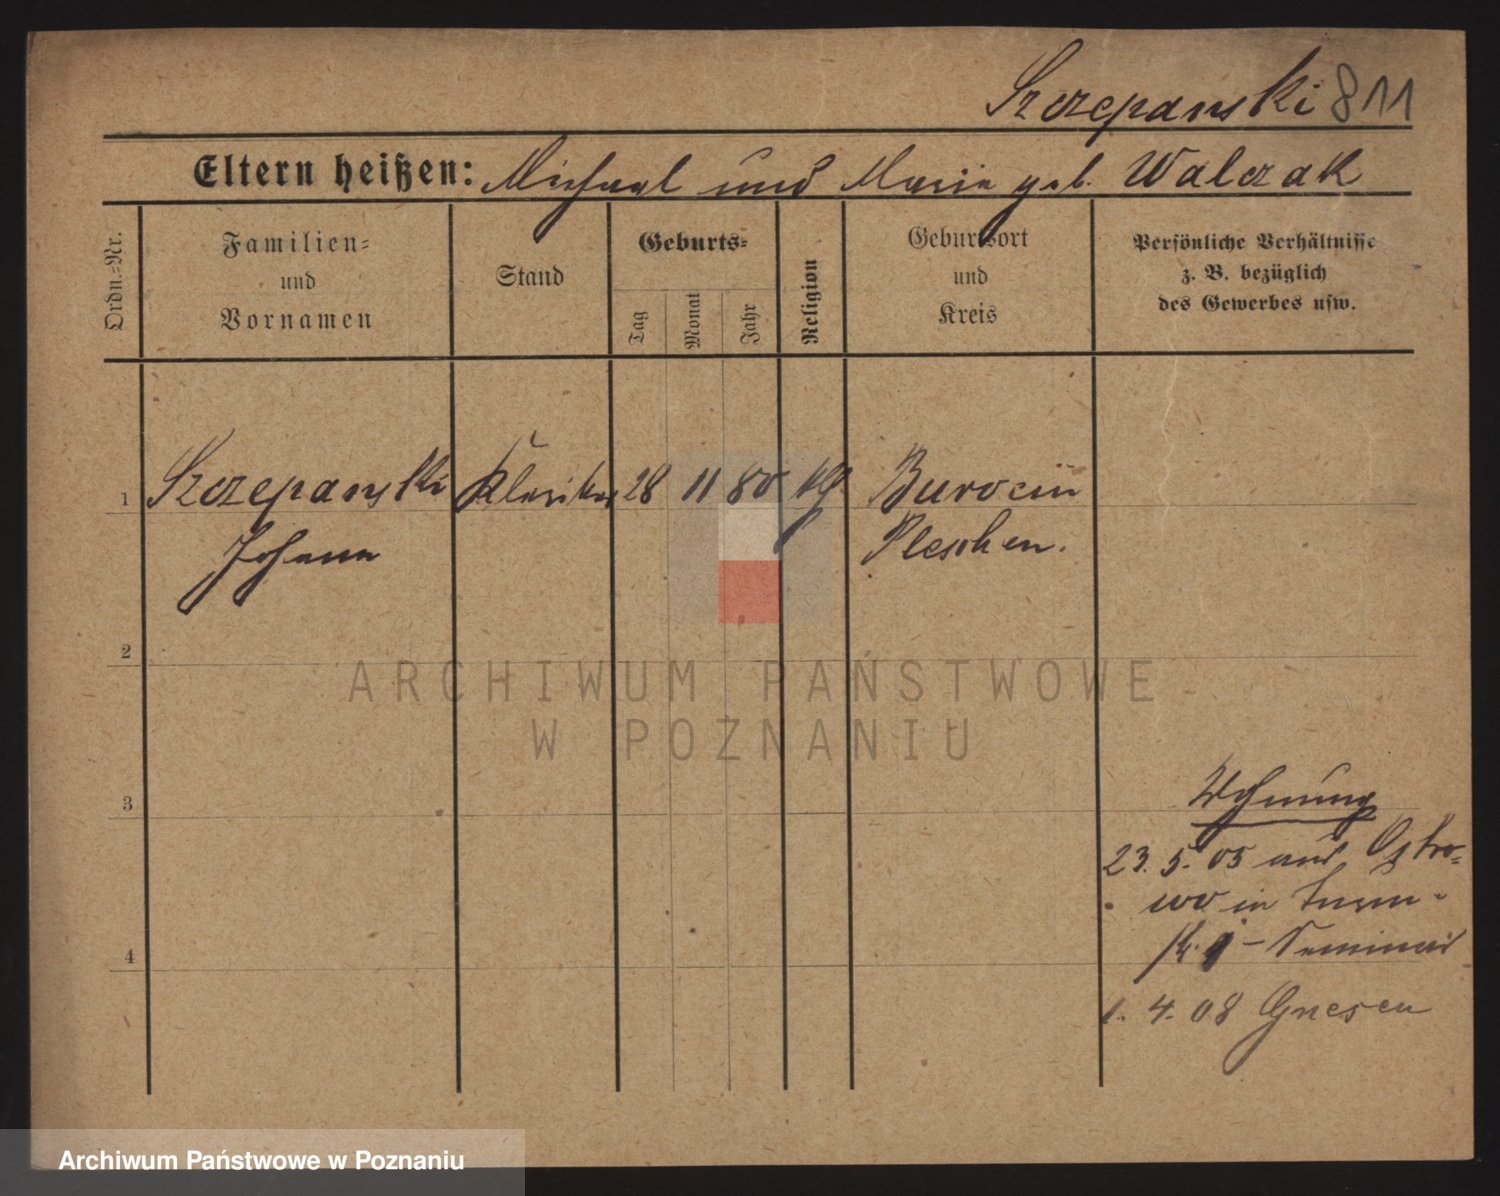 Szczepanski 811
Eltern heißen: Michael und Marie geb. Walczak
Ordn.-Nr.
Familien-
und
Vornamen
Stand
Geburts-
Tag
Monat
Jahr
Religion
Geburtsort
und
Kreis
Persönliche Verhältnisse
z. B. bezüglich
des Gewerbes usw.
1 Szczepanski Kleriker 28 11 80 Burocin
Johann Pleschen.
2
3
4
Wohnung
23. 5. 05 aus Ostro=
wo in
Seminar
1. 4. 08 Gnesen
ARCHIWUM PAŃSTWOWE
W POZNANIU
Archiwum Państwowe w Poznaniu